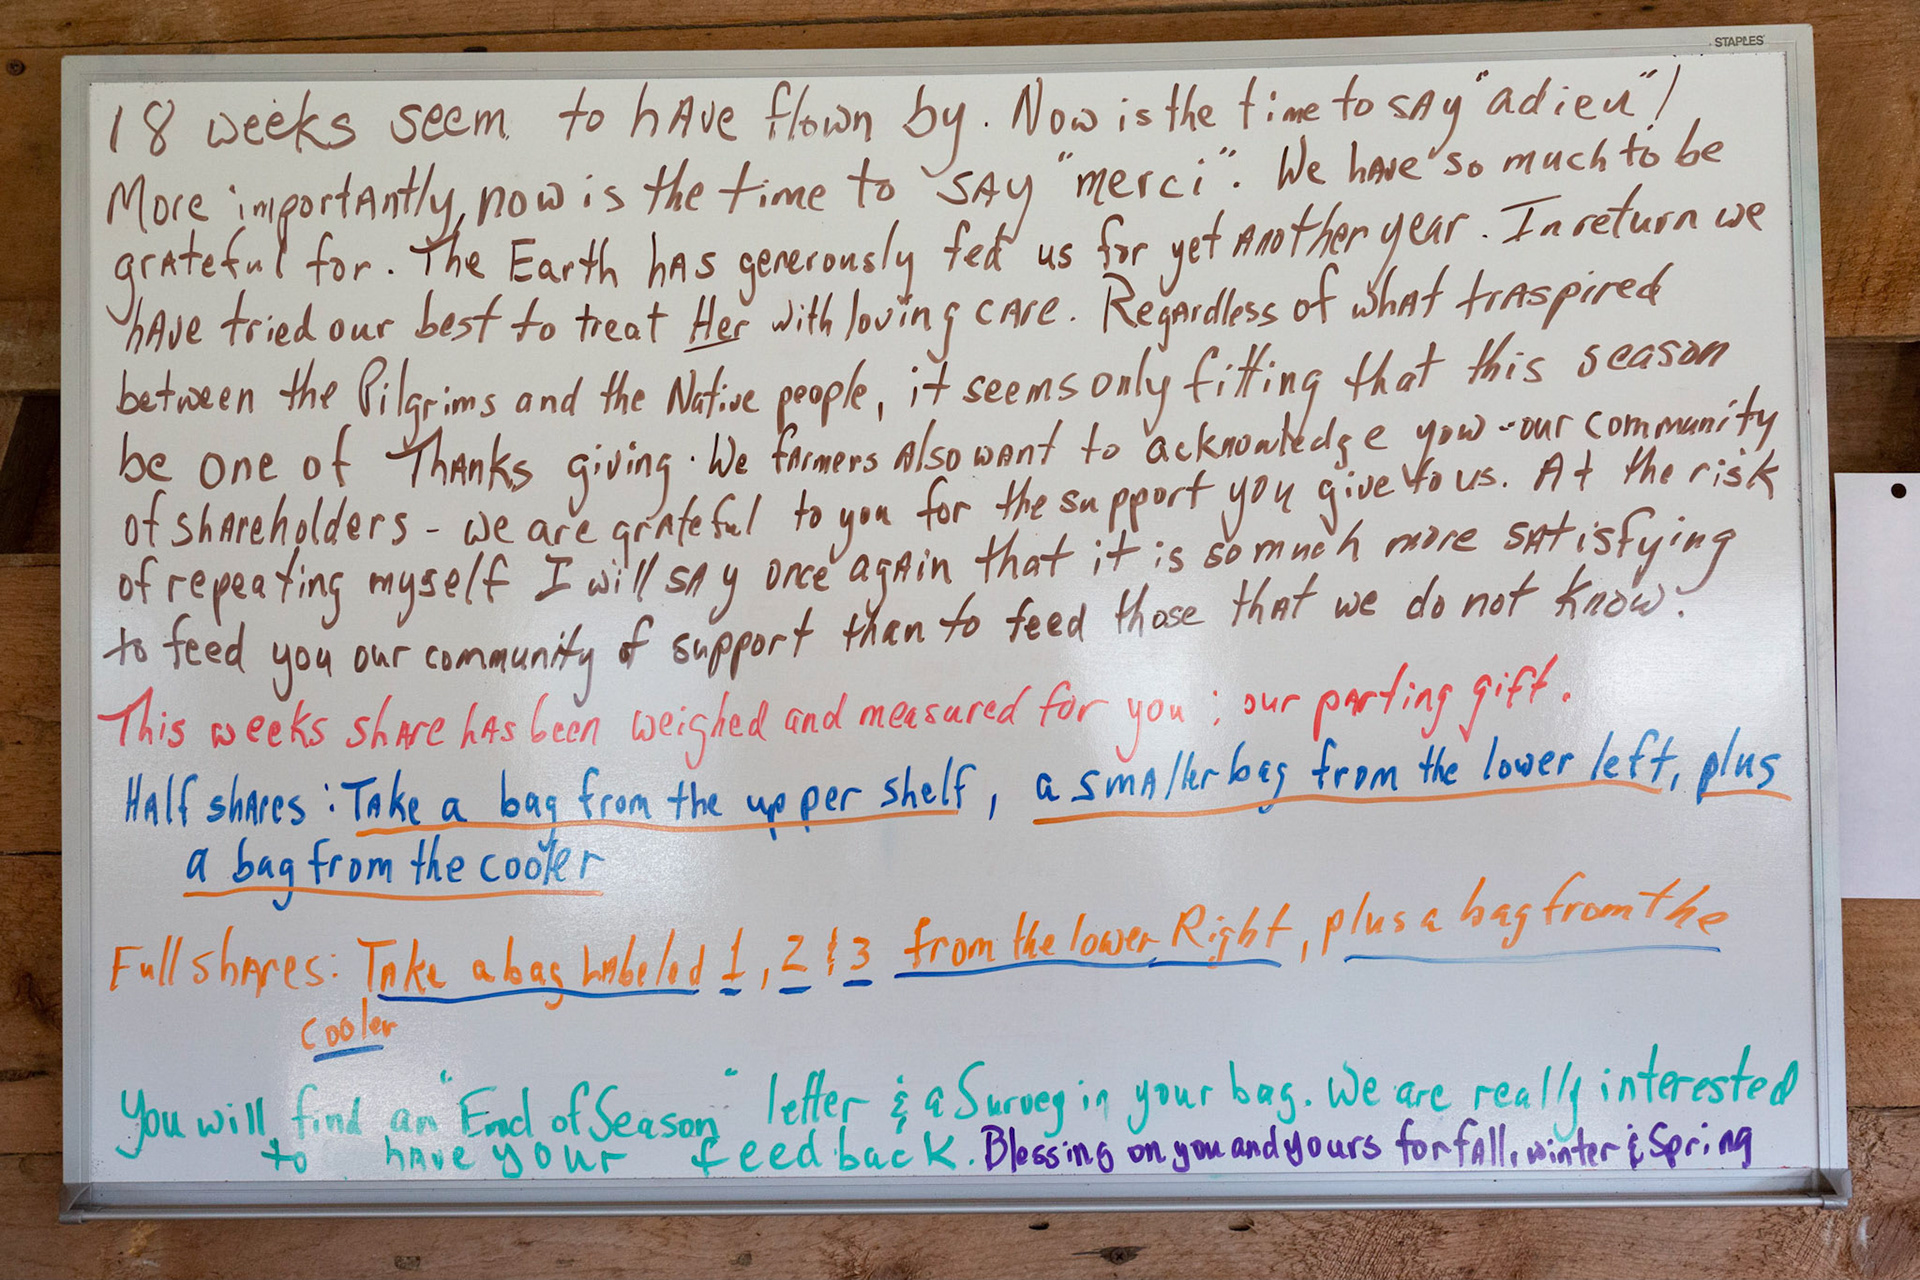 STAPLES
18 weeks seem to have flown by. Now is the time to say "adieu"!
More importantly, now is the time to say "merci". We have so much to be
grateful for. The Earth has generously fed us for yet another year. In return we
have tried our best to treat Her with loving care. Regardless of what traspired
between the Pilgrims and the Native people, it seems only fitting that this season
be one of Thanks giving. We farmers also want to acknowledge you - our community
of shareholders - we are grateful to you for the support you give to us. At the risk
of repeating myself I will say once again that it is so much more satisfying
to feed you our community of support than to feed those that we do not know.
This weeks share has been weighed and measured for you ; our parting gift.
Half shares : Take a bag from the upper shelf, a smaller bag from the lower left, plus
a bag from the cooler
Full shares: Take a bag labeled 1, 2 & 3 from the lower Right, plus a bag from the
cooler
You will find an "End of Season" letter & a Survey in your bag. We are really interested
to have your feedback. Blessing on you and yours for fall, winter & Spring